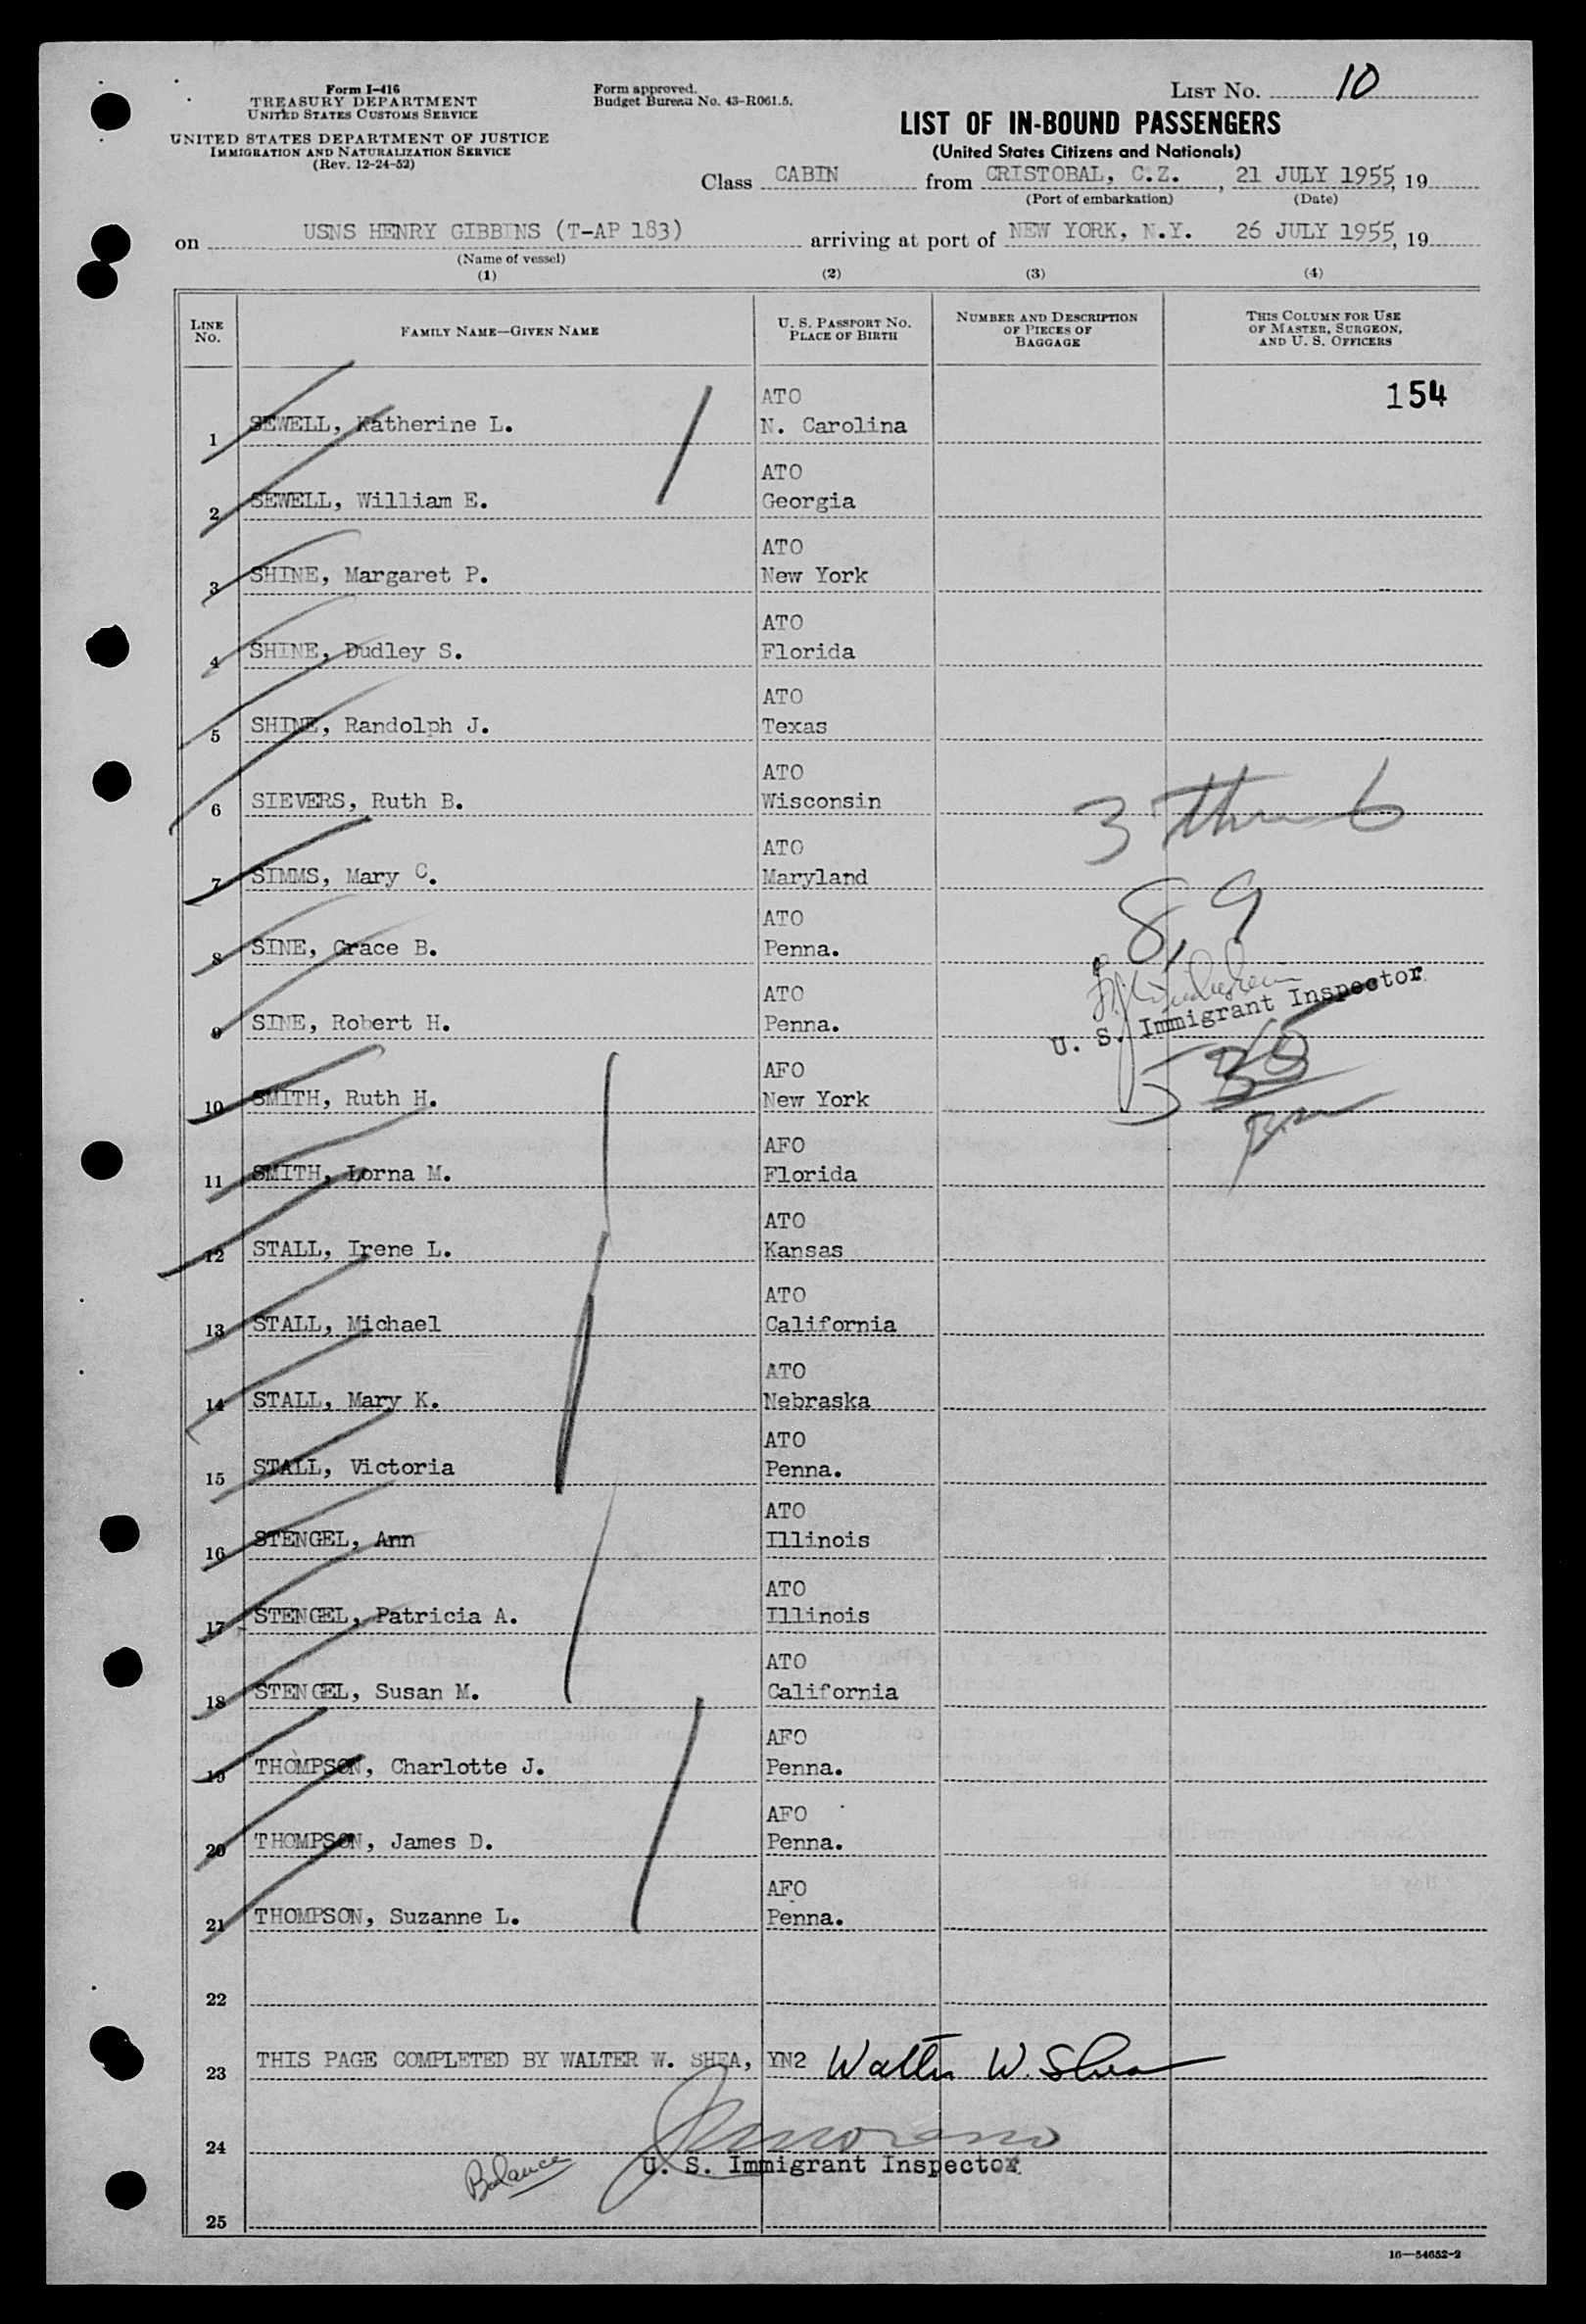 Form I-416
TREASURY DEPARTMENT
UNITED STATES CUSTOMS SERVICE
UNITED STATES DEPARTMENT OF JUSTICE
IMMIGRATION AND NATURALIZATION SERVICE
(Rev. 12-24-52)
Form approved.
Budget Bureau No. 43-R061.5.
LIST No. 10
LIST OF IN-BOUND PASSENGERS
(United States Citizens and Nationals)
Class CABIN from CRISTOBAL, C.Z., 21 JULY 1955, 19
(Port of embarkation) (Date)
on USNS HENRY GIBBINS (T-AP 183) arriving at port of NEW YORK, N.Y. 26 JULY 1955, 19
(Name of vessel)
(1) (2) (3) (4)
LINE No. FAMILY NAME—GIVEN NAME U. S. PASSPORT No. PLACE OF BIRTH NUMBER AND DESCRIPTION OF PIECES OF BAGGAGE THIS COLUMN FOR USE OF MASTER, SURGEON, AND U. S. OFFICERS
154
ATO
1 SEWELL, Katherine L. N. Carolina
ATO
2 SEWELL, William E. Georgia
ATO
3 SHINE, Margaret P. New York
ATO
4 SHINE, Dudley S. Florida
ATO
5 SHINE, Randolph J. Texas
ATO
6 SIEVERS, Ruth B. Wisconsin
3 thru 6
ATO
7 SIMMS, Mary C. Maryland
8, 9
ATO
8 SINE, Grace B. Penna.
ATO
9 SINE, Robert H. Penna.
U. S. Immigrant Inspector
AFO
10 SMITH, Ruth H. New York
AFO
11 SMITH, Lorna M. Florida
ATO
12 STALL, Irene L. Kansas
ATO
13 STALL, Michael California
ATO
14 STALL, Mary K. Nebraska
ATO
15 STALL, Victoria Penna.
ATO
16 STENGEL, Ann Illinois
ATO
17 STENGEL, Patricia A. Illinois
ATO
18 STENGEL, Susan M. California
AFO
19 THOMPSON, Charlotte J. Penna.
AFO
20 THOMPSON, James D. Penna.
AFO
21 THOMPSON, Suzanne L. Penna.
22
23 THIS PAGE COMPLETED BY WALTER W. SHEA, YN2 Walter W. Shea
24
Balance U. S. Immigrant Inspector
25
16—54652-2